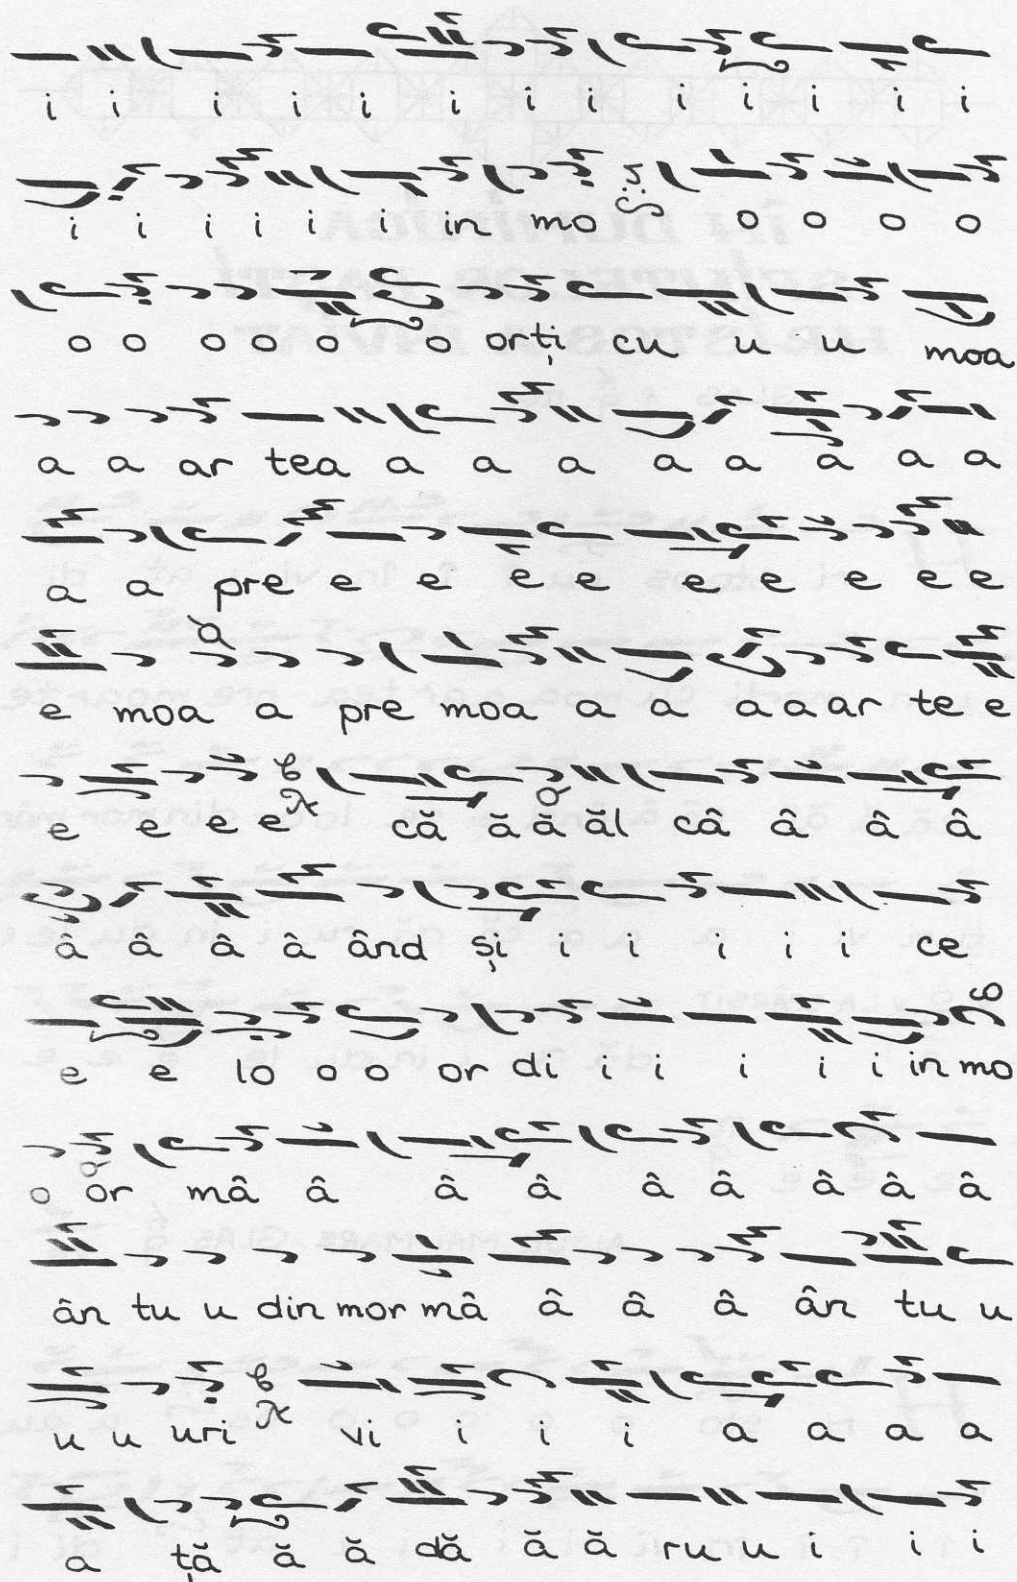 i i i i i i i i i i i i i
i i i i i i in mo o o o o
o o o o o o orți cu u u moa
a a ar tea a a a a a a a a
a a pre e e e e e e e e e
e moa a pre moa a a a a ar te e
e e e e că ă ă ăl câ â â â
â â â â ând și i i i i i ce
e e lo o o or di i i i i i in mo
o or mâ â â â â â â â â
ân tu u din mor mâ â â â ân tu u
u u uri vi i i i a a a a
a ță ă ă dă ă ă ru u i i i